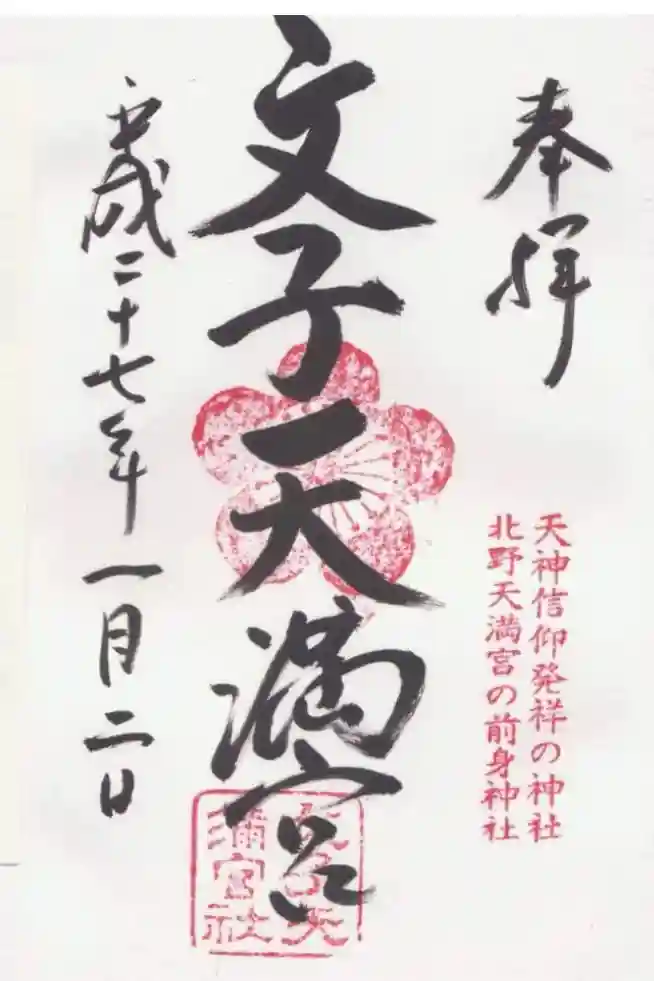 奉拝
天神信仰発祥の神社
北野天満宮の前身神社
文子天満宮
文子天満宮社
平成二十七年一月二日